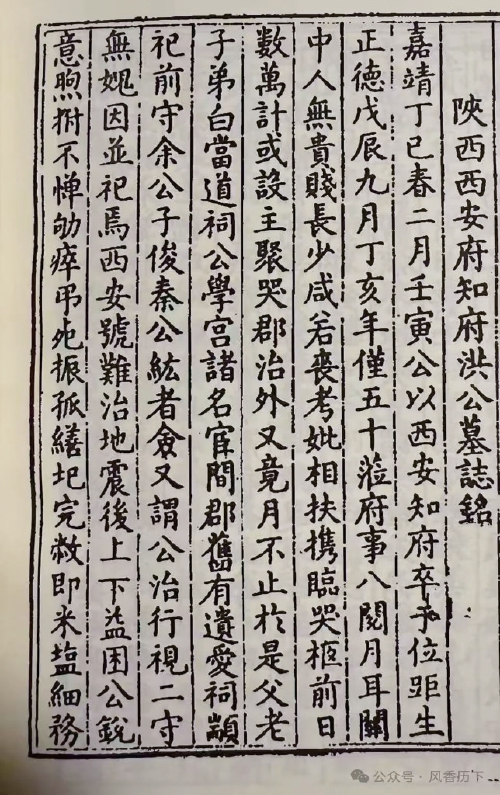 陝西西安府知府洪公墓誌銘
嘉靖丁巳春二月壬寅公以西安知府卒于位距生
正德戊辰九月丁亥年僅五十蒞府事八閱月耳關
中人無貴賤長少咸若喪考妣相扶携臨哭柩前日
數萬計或設主聚哭郡治外又竟月不止於是父老
子弟白當道祠公學宮諸名宦間郡舊有遺愛祠顓
祀前守余公子俊秦公紘者僉又謂公治行視二守
無媿因並祀焉西安號難治地震後上下益困公銳
意煦拊不憚劬瘁弔死振孤繕圮完敝即米塩細務
公众号·风香历下